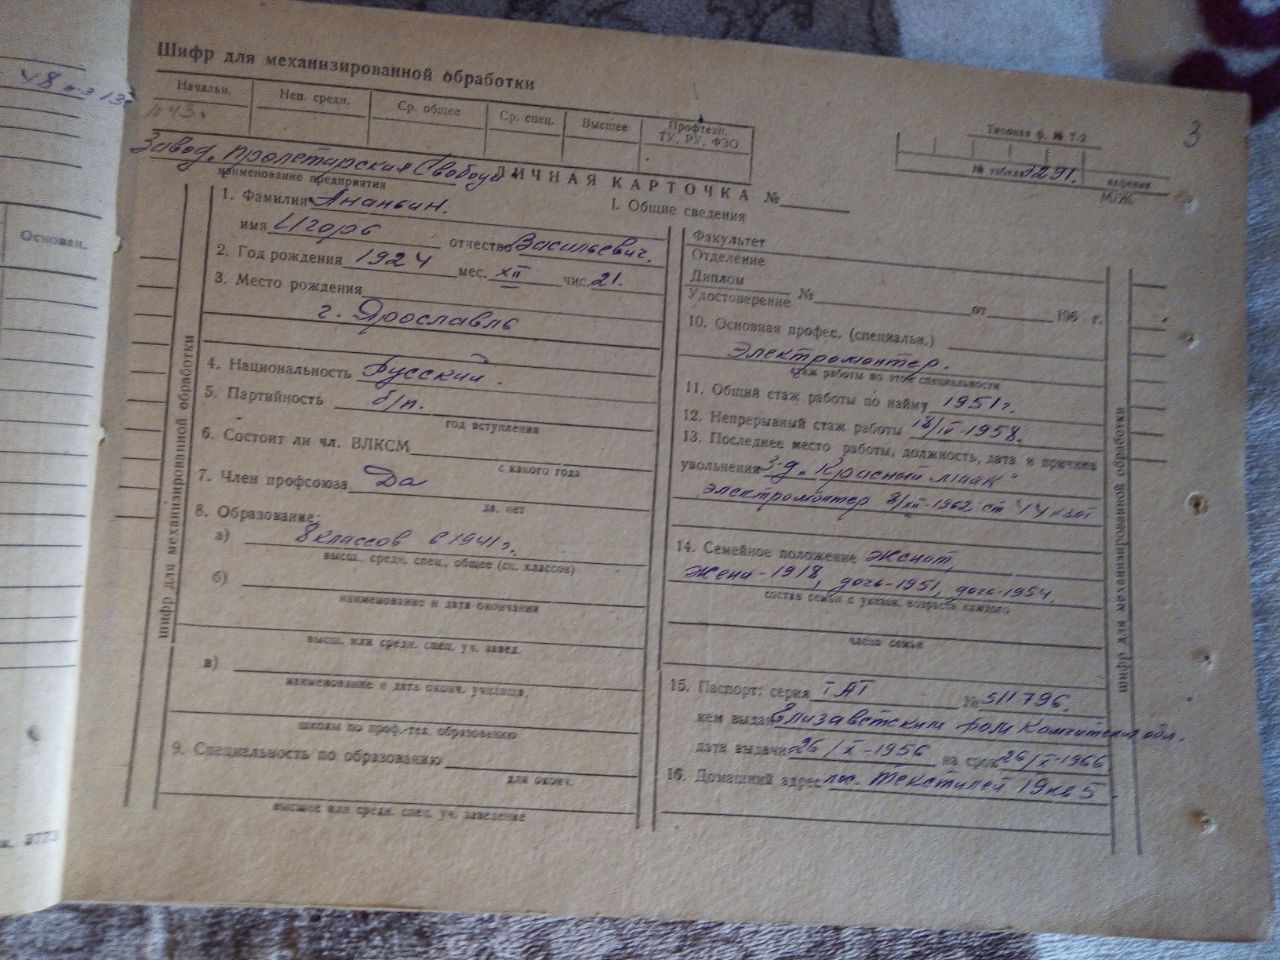 Шифр для механизированной обработки
Начальн. Неп. средн. Ср. общее Ср. спец. Высшее Профтехн. ТУ, РУ, ФЗО
3
Типовая ф. № Т-2
№ табеля 1291.
М/Ж
Завод "Пролетарская Свобода"
наименование предприятия
ЛИЧНАЯ КАРТОЧКА №
I. Общие сведения
1. Фамилия Ананьин.
имя Игорь отчество Васильевич.
2. Год рождения 1924 мес. XII чис. 21.
3. Место рождения
г. Ярославль
4. Национальность Русский.
5. Партийность б/п.
год вступления
6. Состоит ли чл. ВЛКСМ
с какого года
7. Член профсоюза Да
да, нет
8. Образование:
а) 8 классов в 1941 г.
высш. средн. спец., общее (ск. классов)
б)
наименование и дата окончания
высш. или средн. спец. уч. завед.
в)
наименование и дата оконч. училища,
школы по проф.-тех. образованию
9. Специальность по образованию
для оконч.
высшее или средн. спец. уч. заведение
Факультет
Отделение
Диплом
Удостоверение № от 196 г.
10. Основная професс. (специальн.)
Электромонтер.
стаж работы по этой специальности
11. Общий стаж работы по найму 1951 г.
12. Непрерывный стаж работы 18/IV-1958.
13. Последнее место работы, должность, дата и причина
увольнения З-д "Красный маяк"
электромонтер 8/XII-1962 ст
14. Семейное положение женат,
жена-1918, дочь-1951, дочь-1954.
состав семьи с указан. возраста каждого
члена семьи
15. Паспорт: серия № 511796.
кем выдан Елизаветским обл.
дата выдачи 26/X-1956 на срок 26/X-1966
16. Домашний адрес пос. Текстилей 19 кв 5.
шифр для механизированной обработки
шифр для механизированной обработки
Основан.